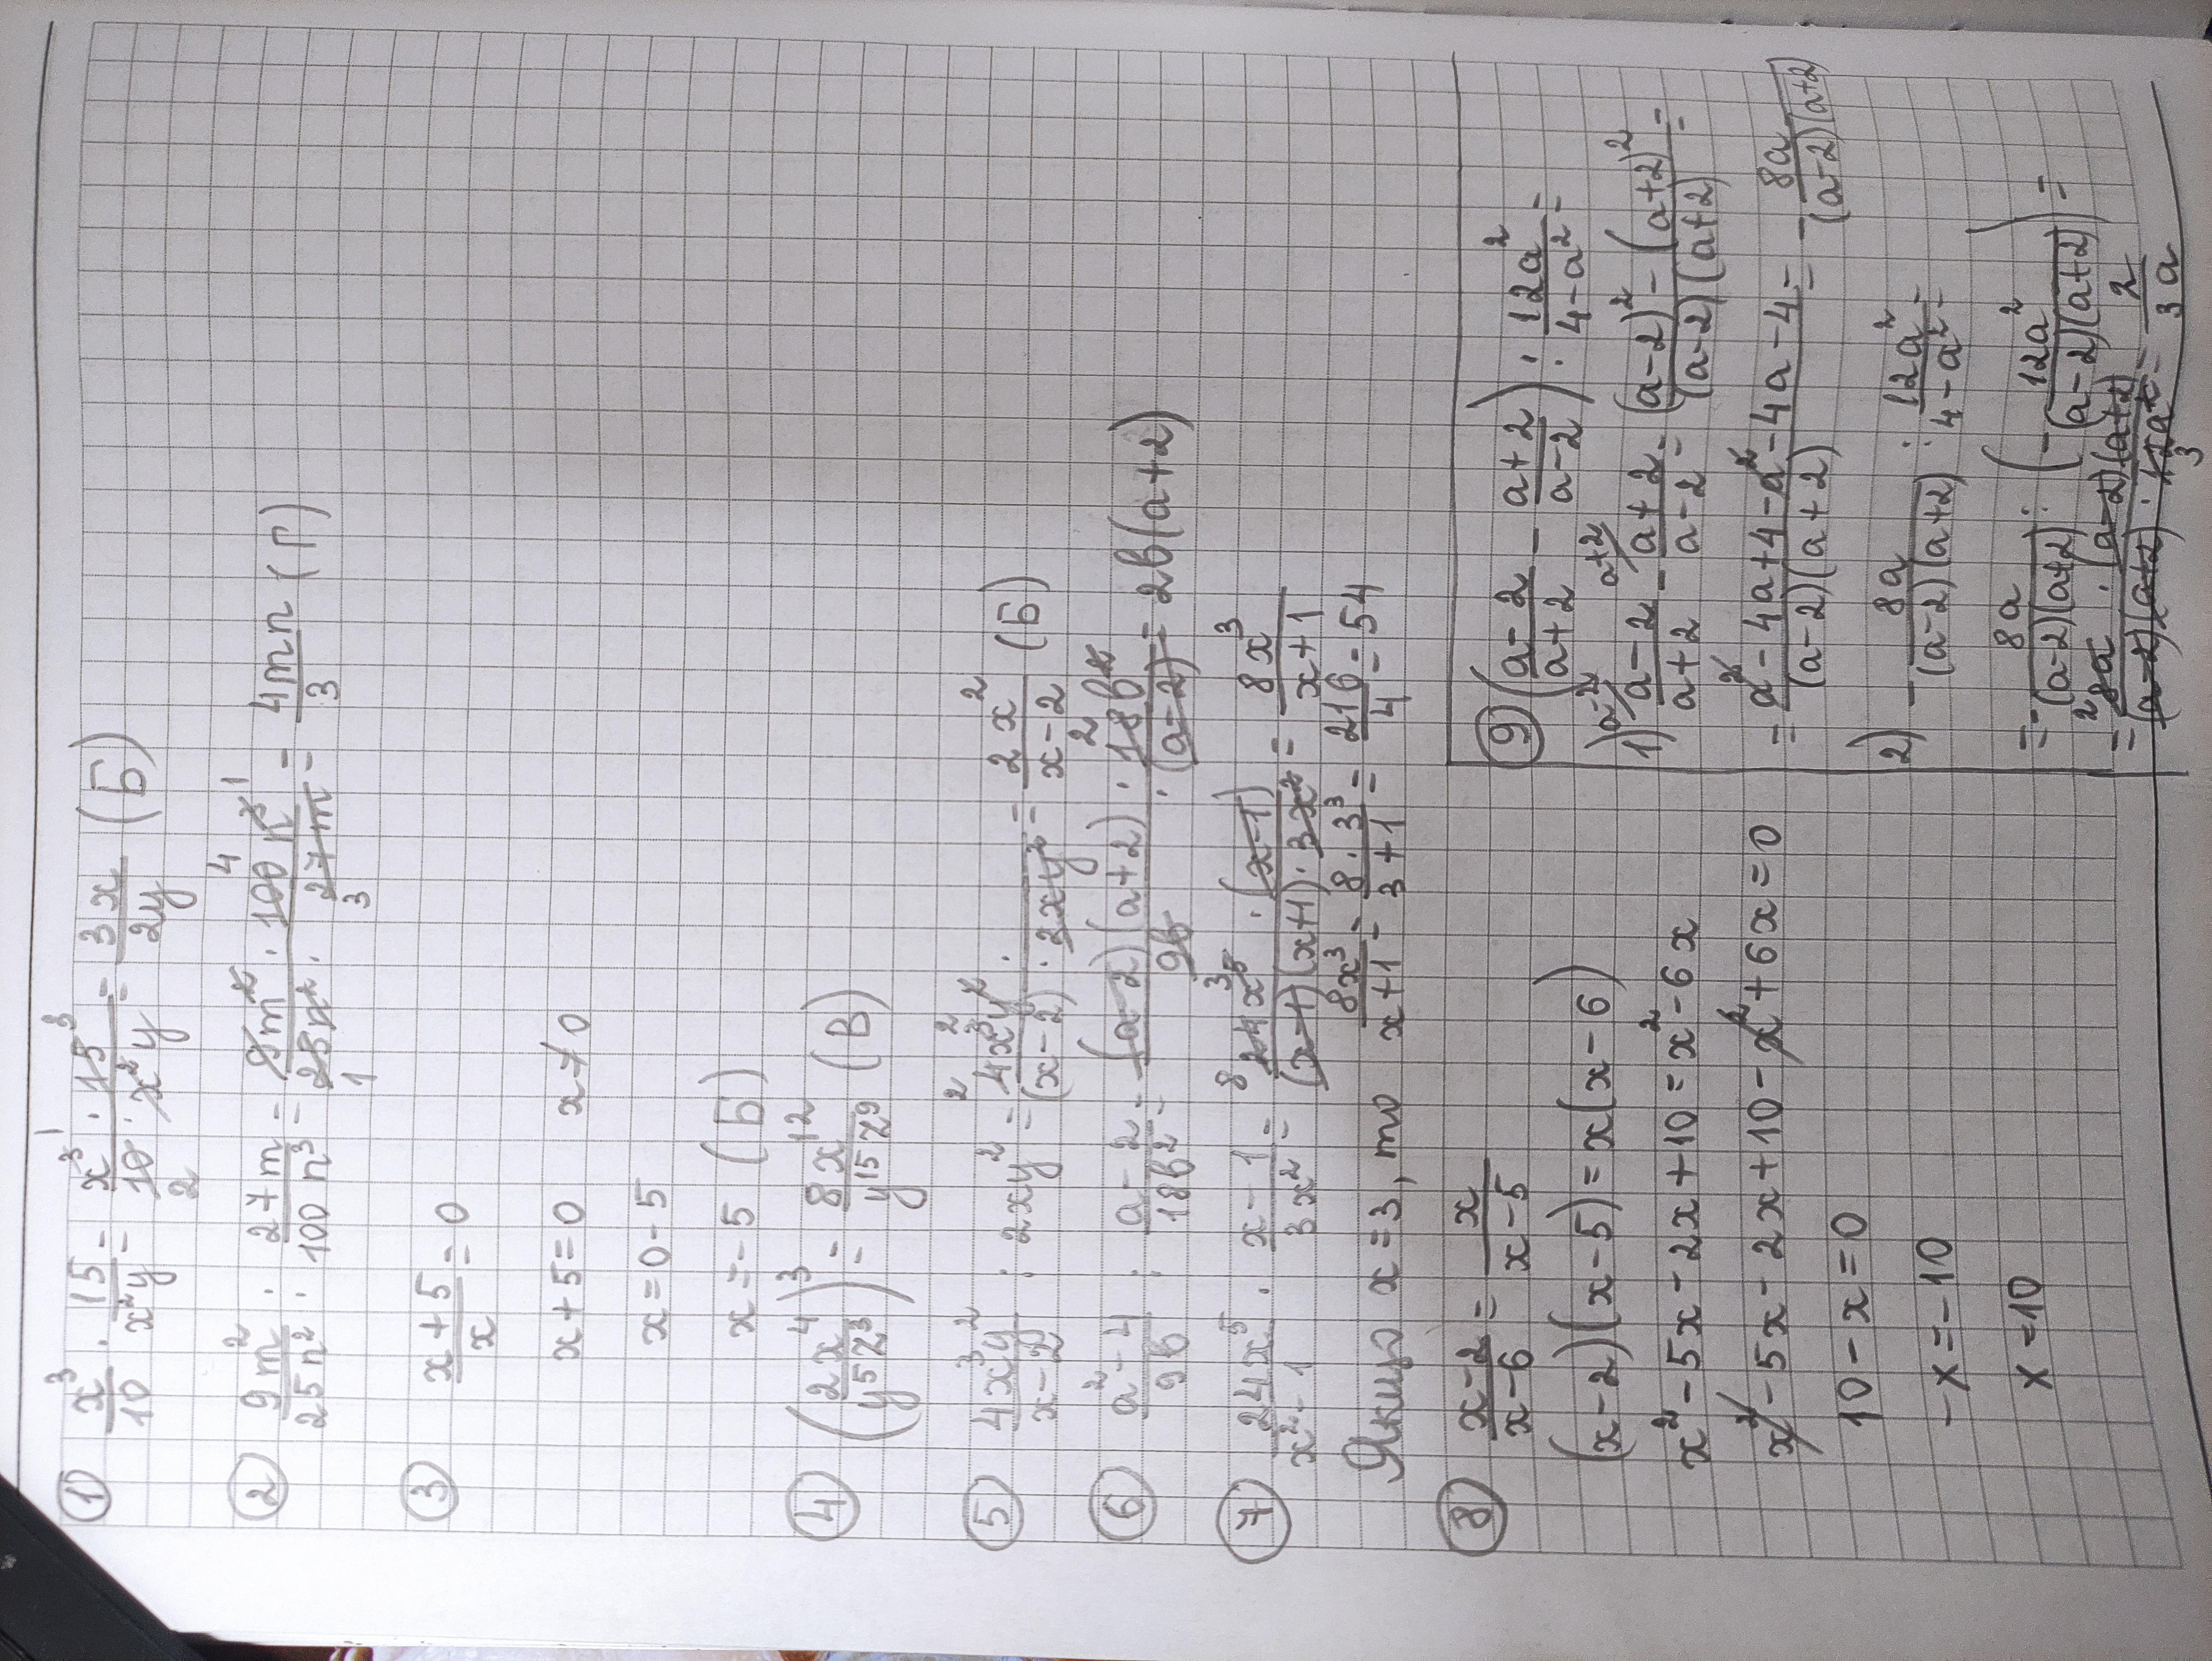 ① x³/10 · 15/x²y = x³ · 15/10 · x²y = 3x/2y (Б)
② 9m²/25n² : 27m/100n³ = 9m² · 100n³/25n² · 27m = 4mn/3 (Г)
③ x+5/x = 0
x+5=0 x≠0
x=0-5
x=-5 (Б)
④ (2x⁴/y⁵z³)³ = 8x¹²/y¹⁵z⁹ (В)
⑤ 4x³y²/x-2 : 2xy² = 4x³y²/(x-2) · 2xy² = 2x²/x-2 (Б)
⑥ a²-4/9b : a-2/18b² = (a-2)(a+2) · 18b²/9b · (a-2) = 2b(a+2)
⑦ 24x⁵/x²-1 · x-1/3x² = 24x⁵ · (x-1)/(x-1)(x+1) · 3x² = 8x³/x+1
Якщо x=3, то 8x³/x+1 = 8·3³/3+1 = 216/4 = 54
⑧ x-2/x-6 = x/x-5
(x-2)(x-5)=x(x-6)
x²-5x-2x+10=x²-6x
x²-5x-2x+10-x²+6x=0
10-x=0
-x=-10
x=10
⑨ (a-2/a+2 - a+2/a-2) : 12a²/4-a² =
1) a-2/a+2 - a+2/a-2 = (a-2)²-(a+2)²/(a-2)(a+2) =
= a²-4a+4-a²-4a-4/(a-2)(a+2) = -8a/(a-2)(a+2)
2) -8a/(a-2)(a+2) : 12a²/4-a² =
= -8a/(a-2)(a+2) : (-12a²/(a-2)(a+2)) =
= 8a · (a-2)(a+2)/(a-2)(a+2) · 12a² = 2/3a